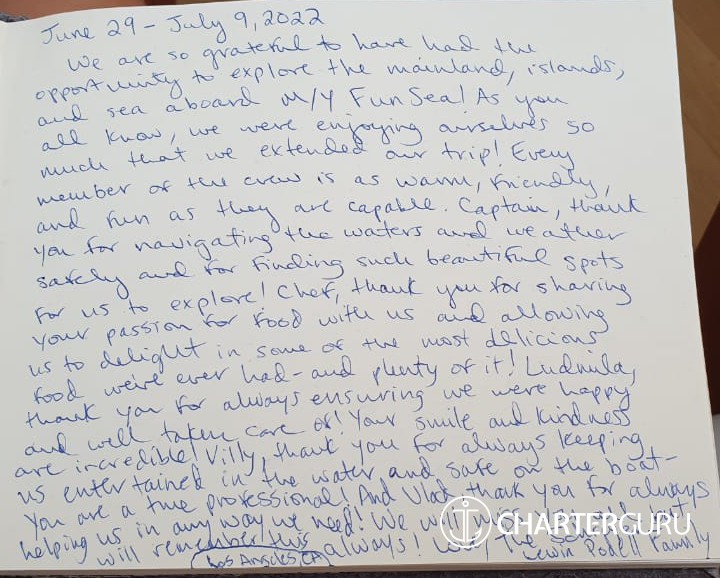 June 29 - July 9, 2022
We are so grateful to have had the
opportunity to explore the mainland, islands,
and sea aboard M/Y Fun Sea! As you
all know, we were enjoying ourselves so
much that we extended our trip! Every
member of the crew is as warm, friendly,
and fun as they are capable. Captain, thank
you for navigating the waters and weather
safely and for finding such beautiful spots
for us to explore! Chef, thank you for sharing
your passion for food with us and allowing
us to delight in some of the most delicious
food we've ever had - and plenty of it! Ludmila,
thank you for always ensuring we were happy
and well taken care of! Your smile and kindness
are incredible! Villy, thank you for always keeping
us entertained in the water and safe on the boat -
you are a true professional! And Vlad, thank you for always
helping us in any way we need! We will miss you all and
will remember this always! Love, The
Lewin Podell Family
Los Angeles, CA
CHARTERGURU